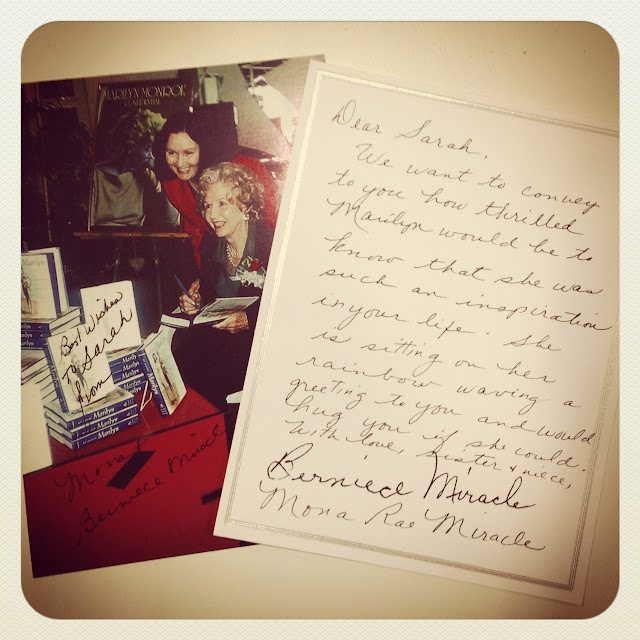 MARILYN MONROE
CONFIDENTIAL
Best Wishes
to Sarah
from
Marilyn
Marilyn
Marilyn
Marilyn
Marilyn
Mona &
Berniece Miracle
Dear Sarah,
We want to convey
to you how thrilled
Marilyn would be to
know that she was
such an inspiration
in your life. She
is sitting on her
rainbow waving a
greeting to you and would
hug you if she could.
With love, sister & niece,
Berniece Miracle
Mona Rae Miracle